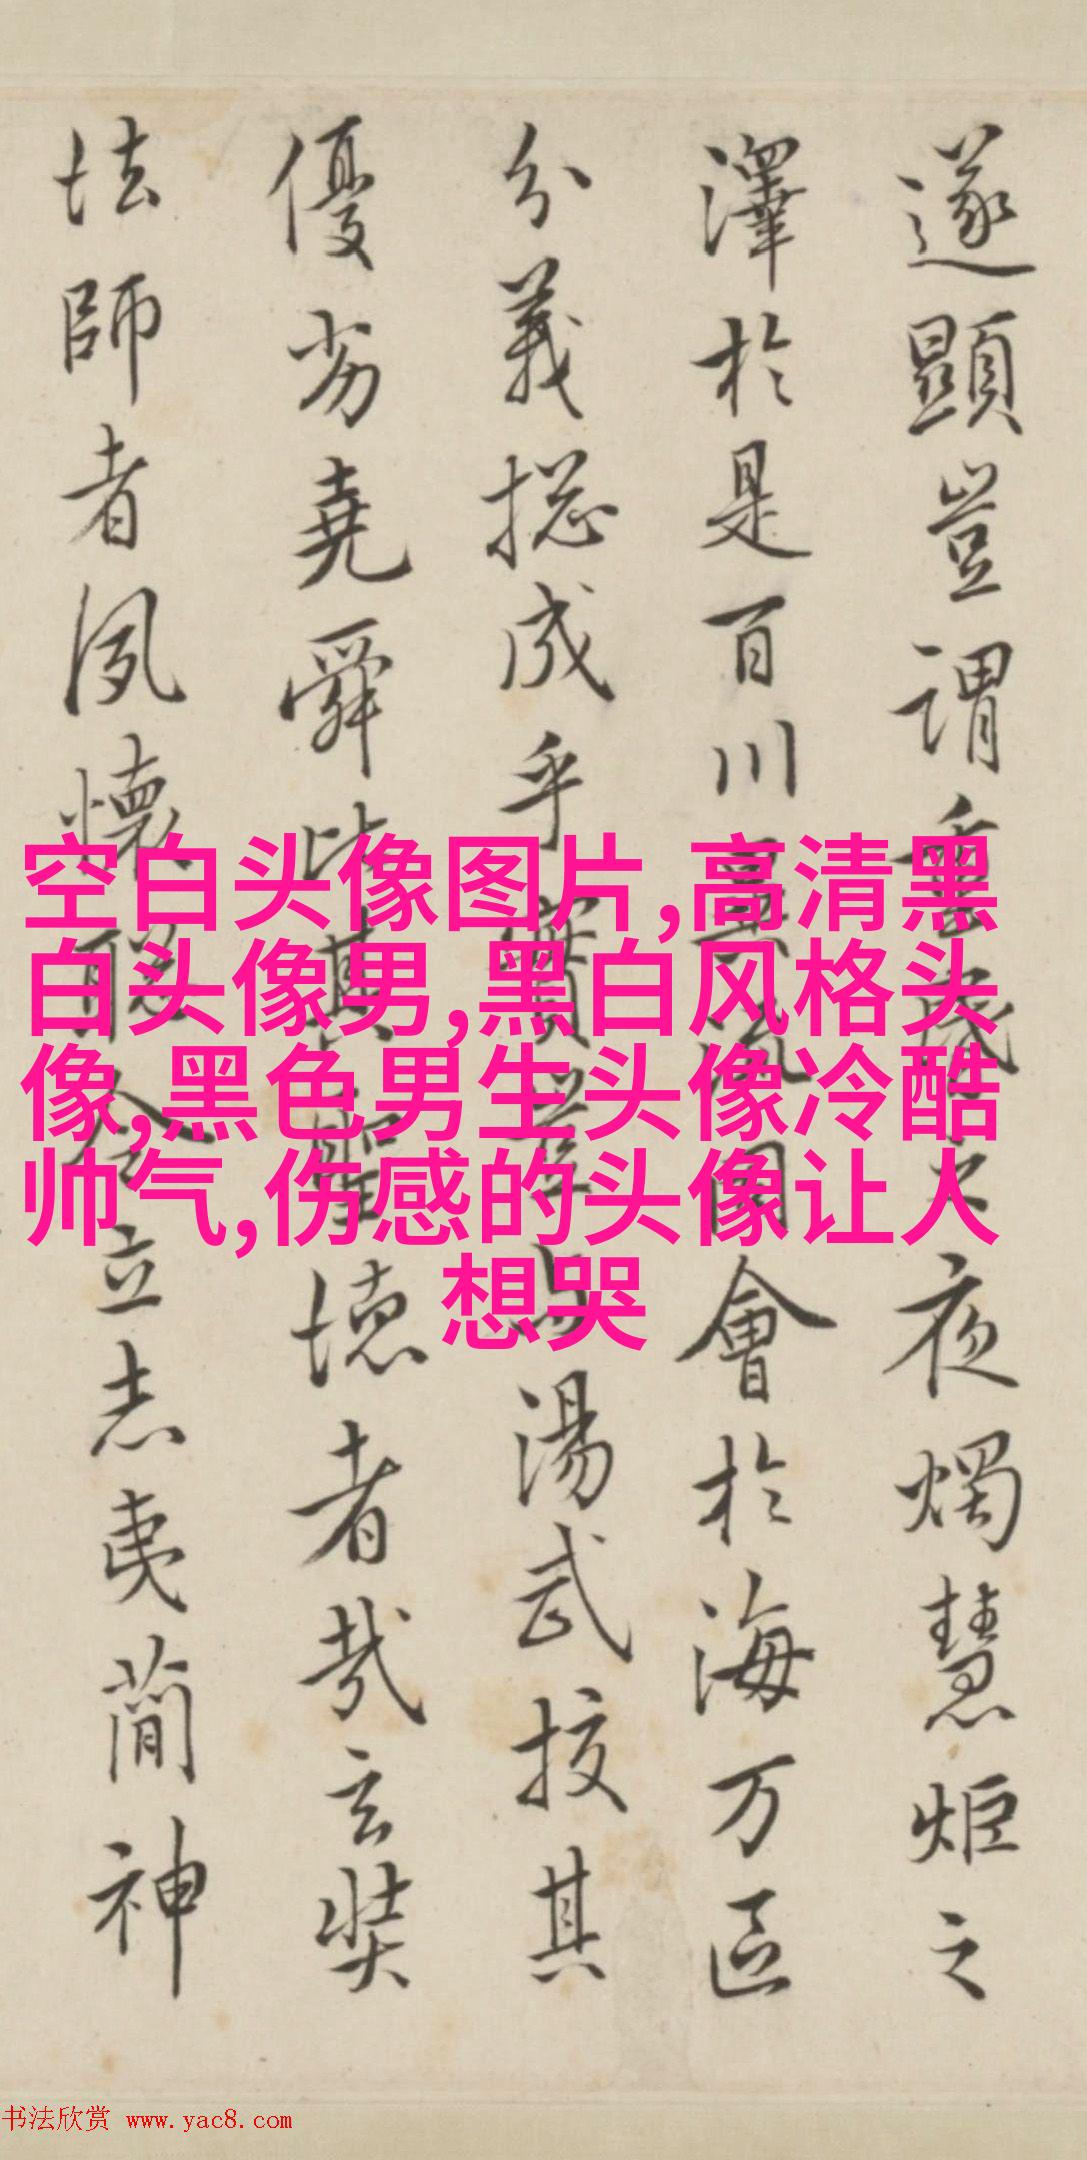 遂顯豈謂重昏之夜燭慧炬之
澤於是百川異流同會於海万區
分義捴成乎實豈与湯武挍其
優劣堯舜比其聖德者哉玄奘
法師者夙懷聡令立志夷簡神
空白头像图片,高清黑
白头像男,黑白风格头
像,黑色男生头像冷酷
帅气,伤感的头像让人
想哭
书法欣赏 www.yac8.com